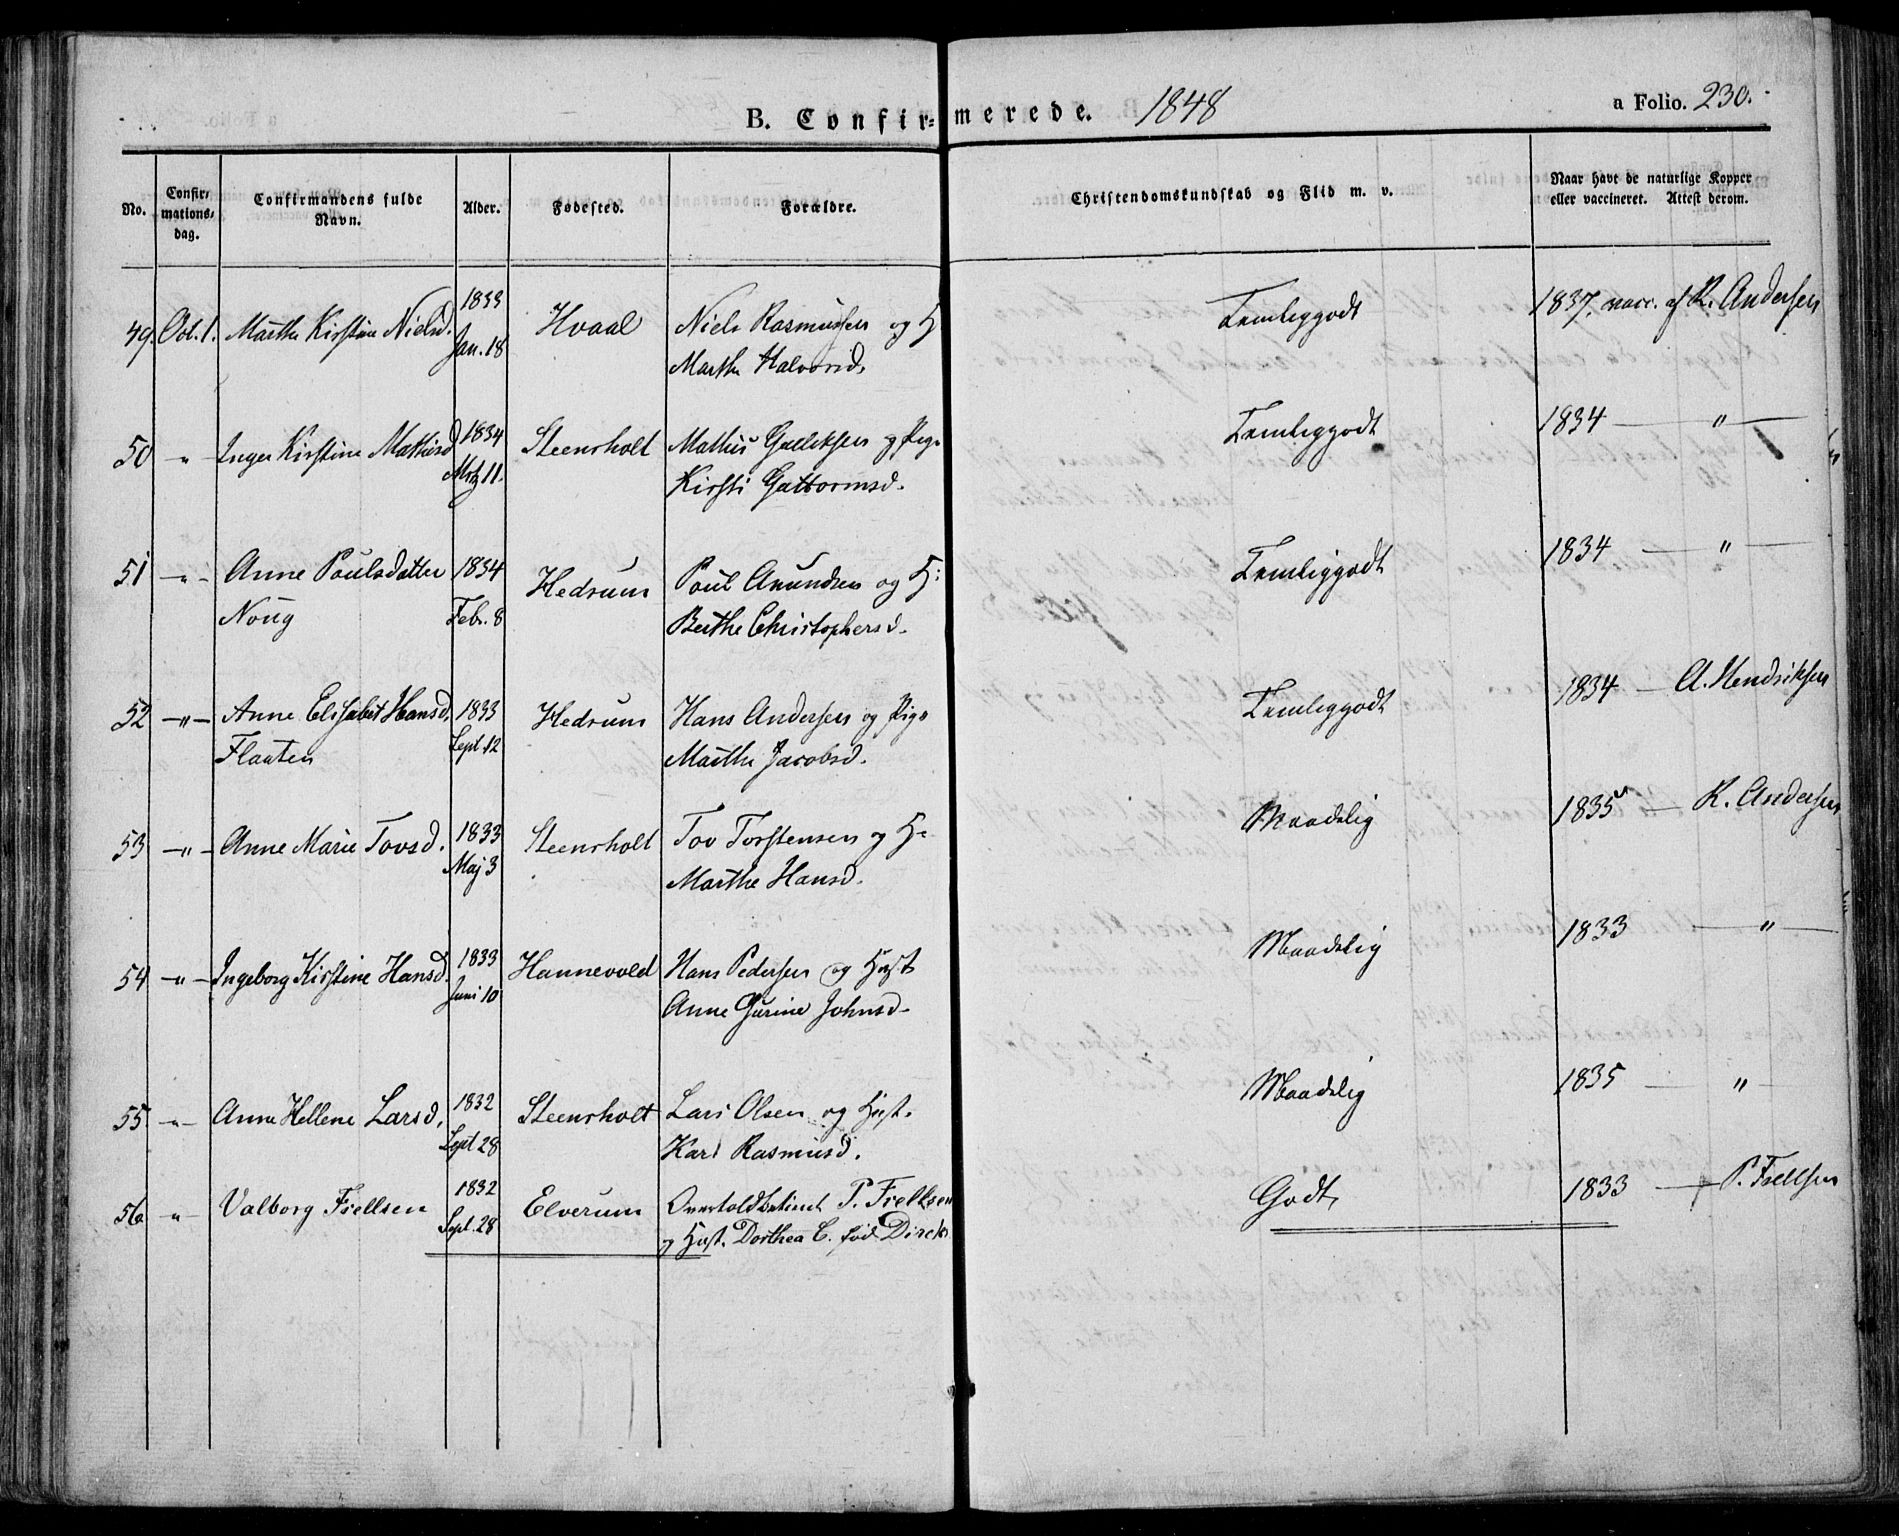 B. Confir= merede. 1848 a Folio. 230.
No. Confir=mations=dag. Confirmandens fulde Navn. Alder. Fødested. Forældre. Christendomskundskab og Flid m. v. Naar havt de naturlige Kopper eller vaccineret. Attest derom.
49. Oct. 1. Marthe Kirstine Nielsd. 1833 Hvaal Niels Rasmussen og H Temliggodt 1837. vacc. af R. Andersen
Jan. 18 Marthe Halvorsd.
50 " Inger Kirstine Mathisd 1834 Steensholt Mathis Gulliksen og Pige Temliggodt 1834 — " —
Mrtz 11. Kirsti Guttormsd.
51 - " - Anne Poulsdatter 1834 Hedrum Poul Anundsen og H: Temliggodt 1834 — " —
Noug Febr. 8 Berthe Christophersd.
52 - " - Anne Elisabet Hansd. 1833 Hedrum Hans Andersen og Pige Temliggodt 1834 — A. Hendriksen
Flaaten Sept. 12 Marthe Jacobsd.
53 - " - Anne Marie Tovsd. 1833 Steensholt Tov Torstensen og H: Maadelig 1835 — R. Andersen
Maj 3 Marthe Hansd.
54 - " - Ingeborg Kirstine Hansd. 1833 Hannevold Hans Pedersen og Hust Maadelig 1833 — " —
Juni 10 Anne Gurine Johnsd.
55 - " - Anne Hellene Larsd. 1832 Steensholt Lars Olsen og Hust. Maadelig 1835 — "
Sept 28 Kari Rasmusd.
56 " Valborg Fiellsen 1832 Elverum Overtoldbetient P. Fiellsen Godt 1833 — P. Fiellsen
Sept. 28 og Hust. Dorthea C. fød Dircks